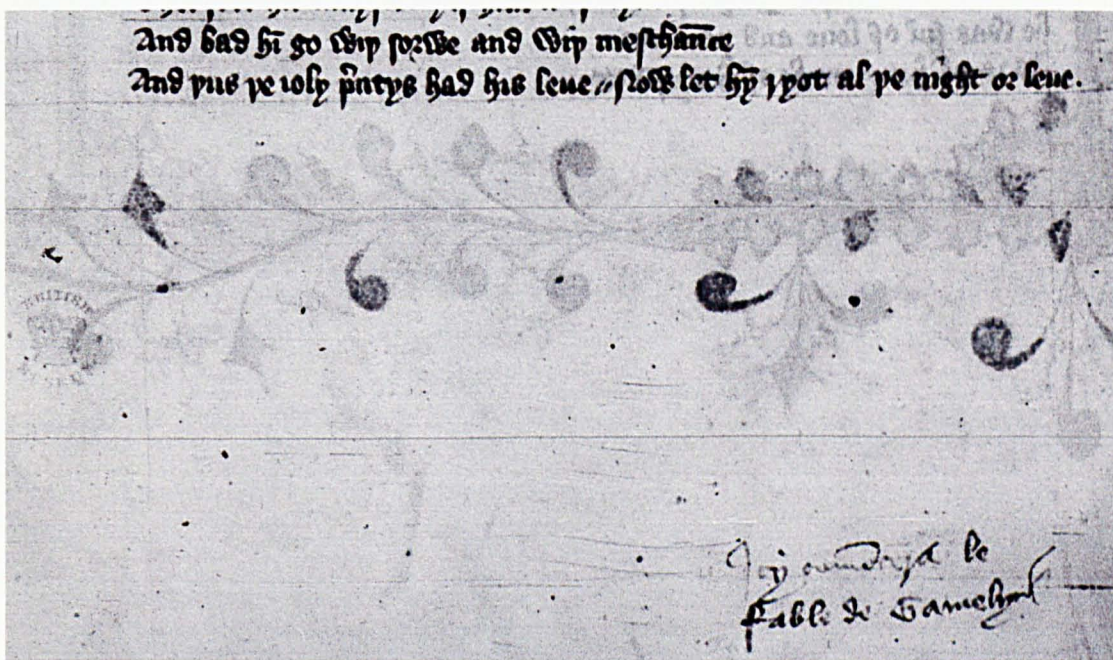 And bad hī go wiþ sorwe and wiþ meschaūce
And þus þe ioly p̄ntys had his leue // Now let hȳ ryot al þe night or leue.
BRITISH
Icy comēcera le
Fable de Gamelyn